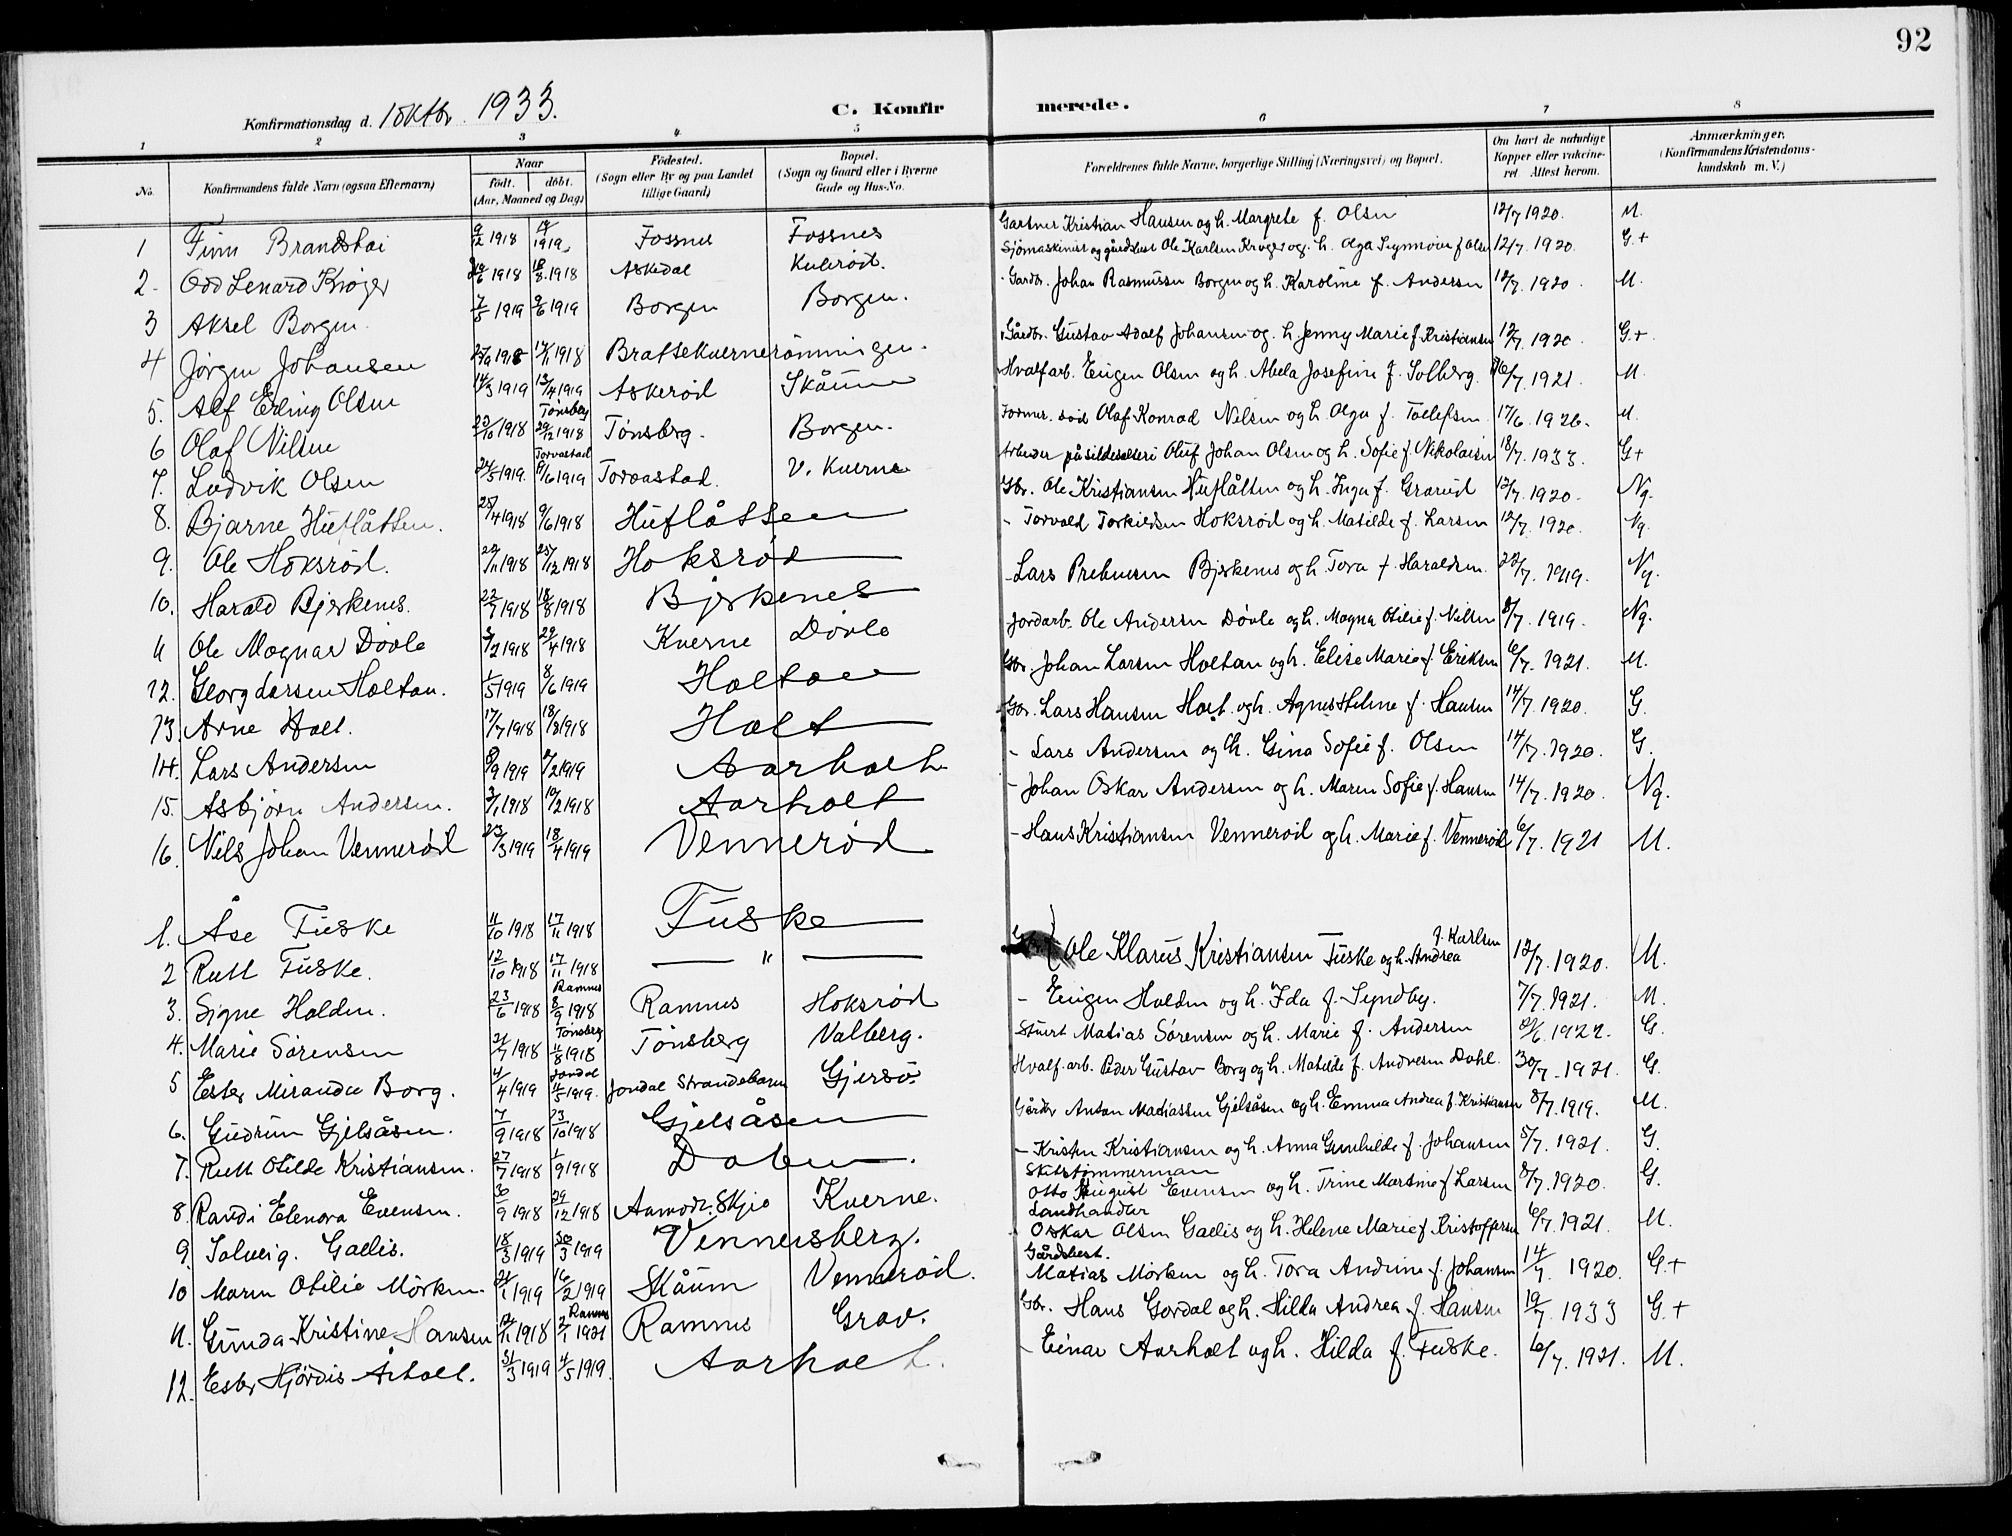 92
Konfirmationsdag d. 1 oktbr. 1933.
C. Konfirmerede.
1 2 3 4 5 6 7 8
No. Konfirmandens fulde Navn (ogsaa Efternavn) Naar født. døbt. (Aar, Maaned og Dag) Fødested. (Sogn eller By og paa Landet tillige Gaard) Bopæl. (Sogn og Gaard eller i Byerne Gade og Hus-No. Forældrenes fulde Navne, borgerlige Stilling (Næringsvei) og Bopæl. Om havt de naturlige Kopper eller vakcineret. Attest herom. Anmærkninger. (Konfirmandens Kristendomskundskab m. V.)
1 Finn Brandstøi 9/12 1918 1919 Fossnes Fossnes Gartner Kristian Hansen og h. Margrete f. Olsen 12/7 1920. M.
2 Odd Lenard Krøger 1918 18/8 1918 Askedal Kulerød. Sjömaskinist og gårdbest Ole Karlsen Krøger og h. Olga Synnøve f Olsen 12/7. 1920. G.+
3 Aksel Borgen. 7/5 1919 9/6 1919 Borgen Borgen. Gardbr. Johan Rasmussen Borgen og h. Karoline f. Andersen 12/7. 1920. M.
4 Jørgen Johansen 1918 17/11 1918 Bratsekvernerönningen. Gårdbr. Gustav Adolf Johansen og h. Jenny Marie f. Kristiansen 12/7. 1920 G.+
5. Alf Erling Olsen 14/3 1919 13/4 1919 Askerød Skåum Hvalfarb. Eugen Olsen og h. Abela Josefine f. Solberg. 6/7. 1921. M.
6 Olaf Nilsen 23/10 1918 Tönsberg 29/12 1918 Tönsberg. Borgen. Former. död Olaf Konrad Nilsen og h. Olga f. Tollefsen 17/6. 1926. M.
7. Ludvik Olsen 24/5 1919. Torvastad 9/6 1919 Torvastad. V. Kverne Arbeider på sildesalteri Oluf Johan Olsen og h. Sofie f. Nikolaisen 18/7. 1933. G+
8. Bjarne Huflåtten. 25/4 1918 9/6 1918 Huflåtten Gbr. Ole Kristiansen Huflåtten og h. Inga f. Grorud 12/7. 1920. Ng.
9. Ole Hoksrød. 22/11 1918 25/12 1918 Hoksrød - Torvald Torkildsen Hoksrød og h. Matilde f. Larsen 12/7. 1920. Ng.
10. Harald Bjerkenes. 22/7 1918 18/8 1918 Bjerkenes - Lars Prebensen Bjerkenes og h. Tora f. Haraldsen. 22/7. 1919. Ng.
11 Ole Magnar Dövle 3/2 1918 29/4 1918 Kverne Dövle Jordarb. Ole Andersen Dövle og h. Magna Otilie f. Nilsen 8/7. 1919. Ng.
12. Georg Larsen Holtan. 1/5 1919 8/6 1919 Holtan Gbr. Johan Larsen Holtan og h. Elise Marie f. Eriksen 6/7. 1921. M.
13. Arne Holt. 17/7 1918 18/8 1918 Holt Gbr. Lars Hansen Holt og h. Agnes Helene f. Hansen 14/7. 1920. G.
14. Lars Andersen 1919 1919 Aarholt - Lars Andersen og h. Gina Sofie f. Olsen 14/7. 1920. G.
15. Asbjørn Andersen. 3/1 1918 10/2 1918 Aarholt - Johan Oskar Andersen og h. Maren Sofie f. Hansen 14/7. 1920. Ng.
16. Nils Johan Vennerød 23/3 1919 18/4 1919 Vennerød - Hans Kristiansen Vennerød og h. Marie f. Vennerød 6/7. 1921 M.
1. Åse Fuske 11/10 1918 17/11 1918 Fuske Ole Klarus Kristiansen Fuske og h. Andrea f. Karlsen 12/7. 1920. M.
2 Rutt Fuske. 12/10 1918 17/11 1918 — " —
3. Signe Holden. 23/6 1918 Ramnes 8/9 1918 Ramnes Hoksrød - Eugen Holden og h. Ida f. Syndby. 7/7. 1921. M.
4. Marie Sørensen 21/7 1918 Tönsberg 11/8 1918 Tönsberg Valberg. Stuert Matias Sörensen og h. Marie f. Andersen 1922. G.
5 Ester Miranda Borg. 4/4 1919 Jondal 4/5 1919. Jondal Strandebarm Gjersö Hvalf.arb. Peder Gustav Borg og h. Matilde f. Andresen Dahl. 30/7. 1921. G.
6. Gudrun Gjelsåsen. 7/9 1918 23/10 1918 Gjelsåsen Gårdbr Anton Madiassen Gjelsåsen og h. Emma Andrea f. Kristiansen 8/7. 1919. M.
7. Rutt Otilde Kristiansen. 27/7 1918 1/9 1918 Daben. - Kristen Kristiansen og h. Anna Gunhilde f. Johansen 5/7. 1921. G.
8. Randi Elenora Evensen. 30/9 1918 29/12 1918 Aamodt. Skjee Kverne. Skibstömmerman Otto August Evensen og h. Trine Martine f Larsen 8/7. 1920. G.
9. Solveig. Gallis. 18/3 1919 30/3 1919 Vennersberg. Landhandler Oskar Olsen Gallis og h. Helene Marie f. Kristoffersen 6/7. 1921. M.
10 Maren Otilie Mörken. 21/1 1919 16/2 1919 Skåum Vennerød. Gårdsbest. Matias Mörken og h. Tora Andrine f. Johansen 14/7. 1920. G.+
11. Gunda Kristine Hansen 12/11 1918 Ramnes 2/1 1921 Ramnes Grav. Gbr. Hans Gordal og h. Hilda Andrea f. Hansen 19/7. 1933 G.+
12. Ester Hjördis Årholt. 31/3 1919 4/5 1919. Aarholt. - Einar Aarholt og h. Hilda f. Fuske. 6/7. 1921. M.